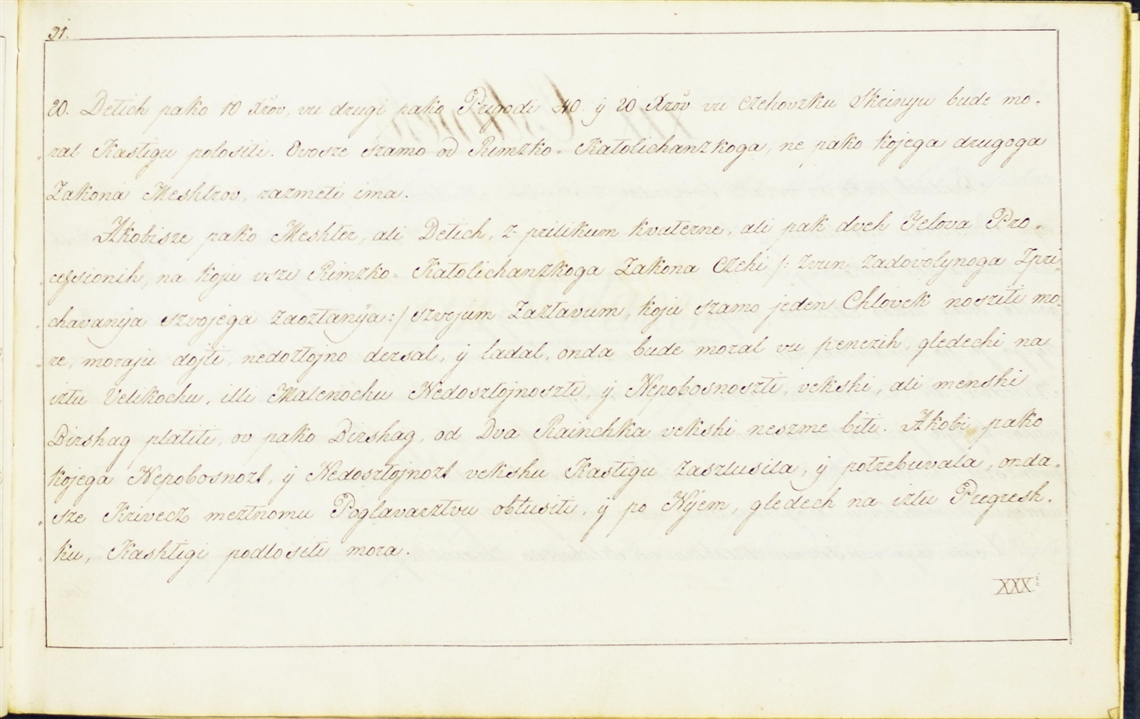 31.
20. Detich pako 10 Xrov, vu drugi pako Prigodi 40 ÿ 20 Xrov vu Czehovzku Skrinyu bude mo-
ral Kastigu polositi. Ovosze szamo od Rimzko-Katolichanzkoga, ne pako kojega drugoga
Zakona Meshtrov, razmeti ima.
Akobisze pako Meshter, ali Detich, z prilikum kvaterne, ali pak dveh Telova Pro-
cessionih, na koju vszi Rimzko-Katolichanzkoga Zakona Czehi /: zvun zadovolynoga Izpri-
chavanija szvojega zaoztanÿa :/ szvojum Zaztavum, koju szamo jeden Chlovek nosziti mo-
re, moraju dojti, nedoztojno dersal, ÿ ladal, onda bude moral vu penezih, gledechi na
iztu Velikochu, illi Malenochu Nedosztojnoszti, ÿ Nepobosnoszti, vekski, ali menski
Birshag platiti, ov pako Birshag, od Dva Rainchka vekshi neszme biti. Akobi pako
kojega Nepobosnozt, ÿ Nedosztojnozt vekshu Kastigu zaszlusila, ÿ potrebuvala, onda-
sze Krivecz meztnomu Poglavarztvu obtusiti, ÿ po Nÿem, gledech na iztu Pregresh-
ku, Kashtigi podlositi mora.
XXX: